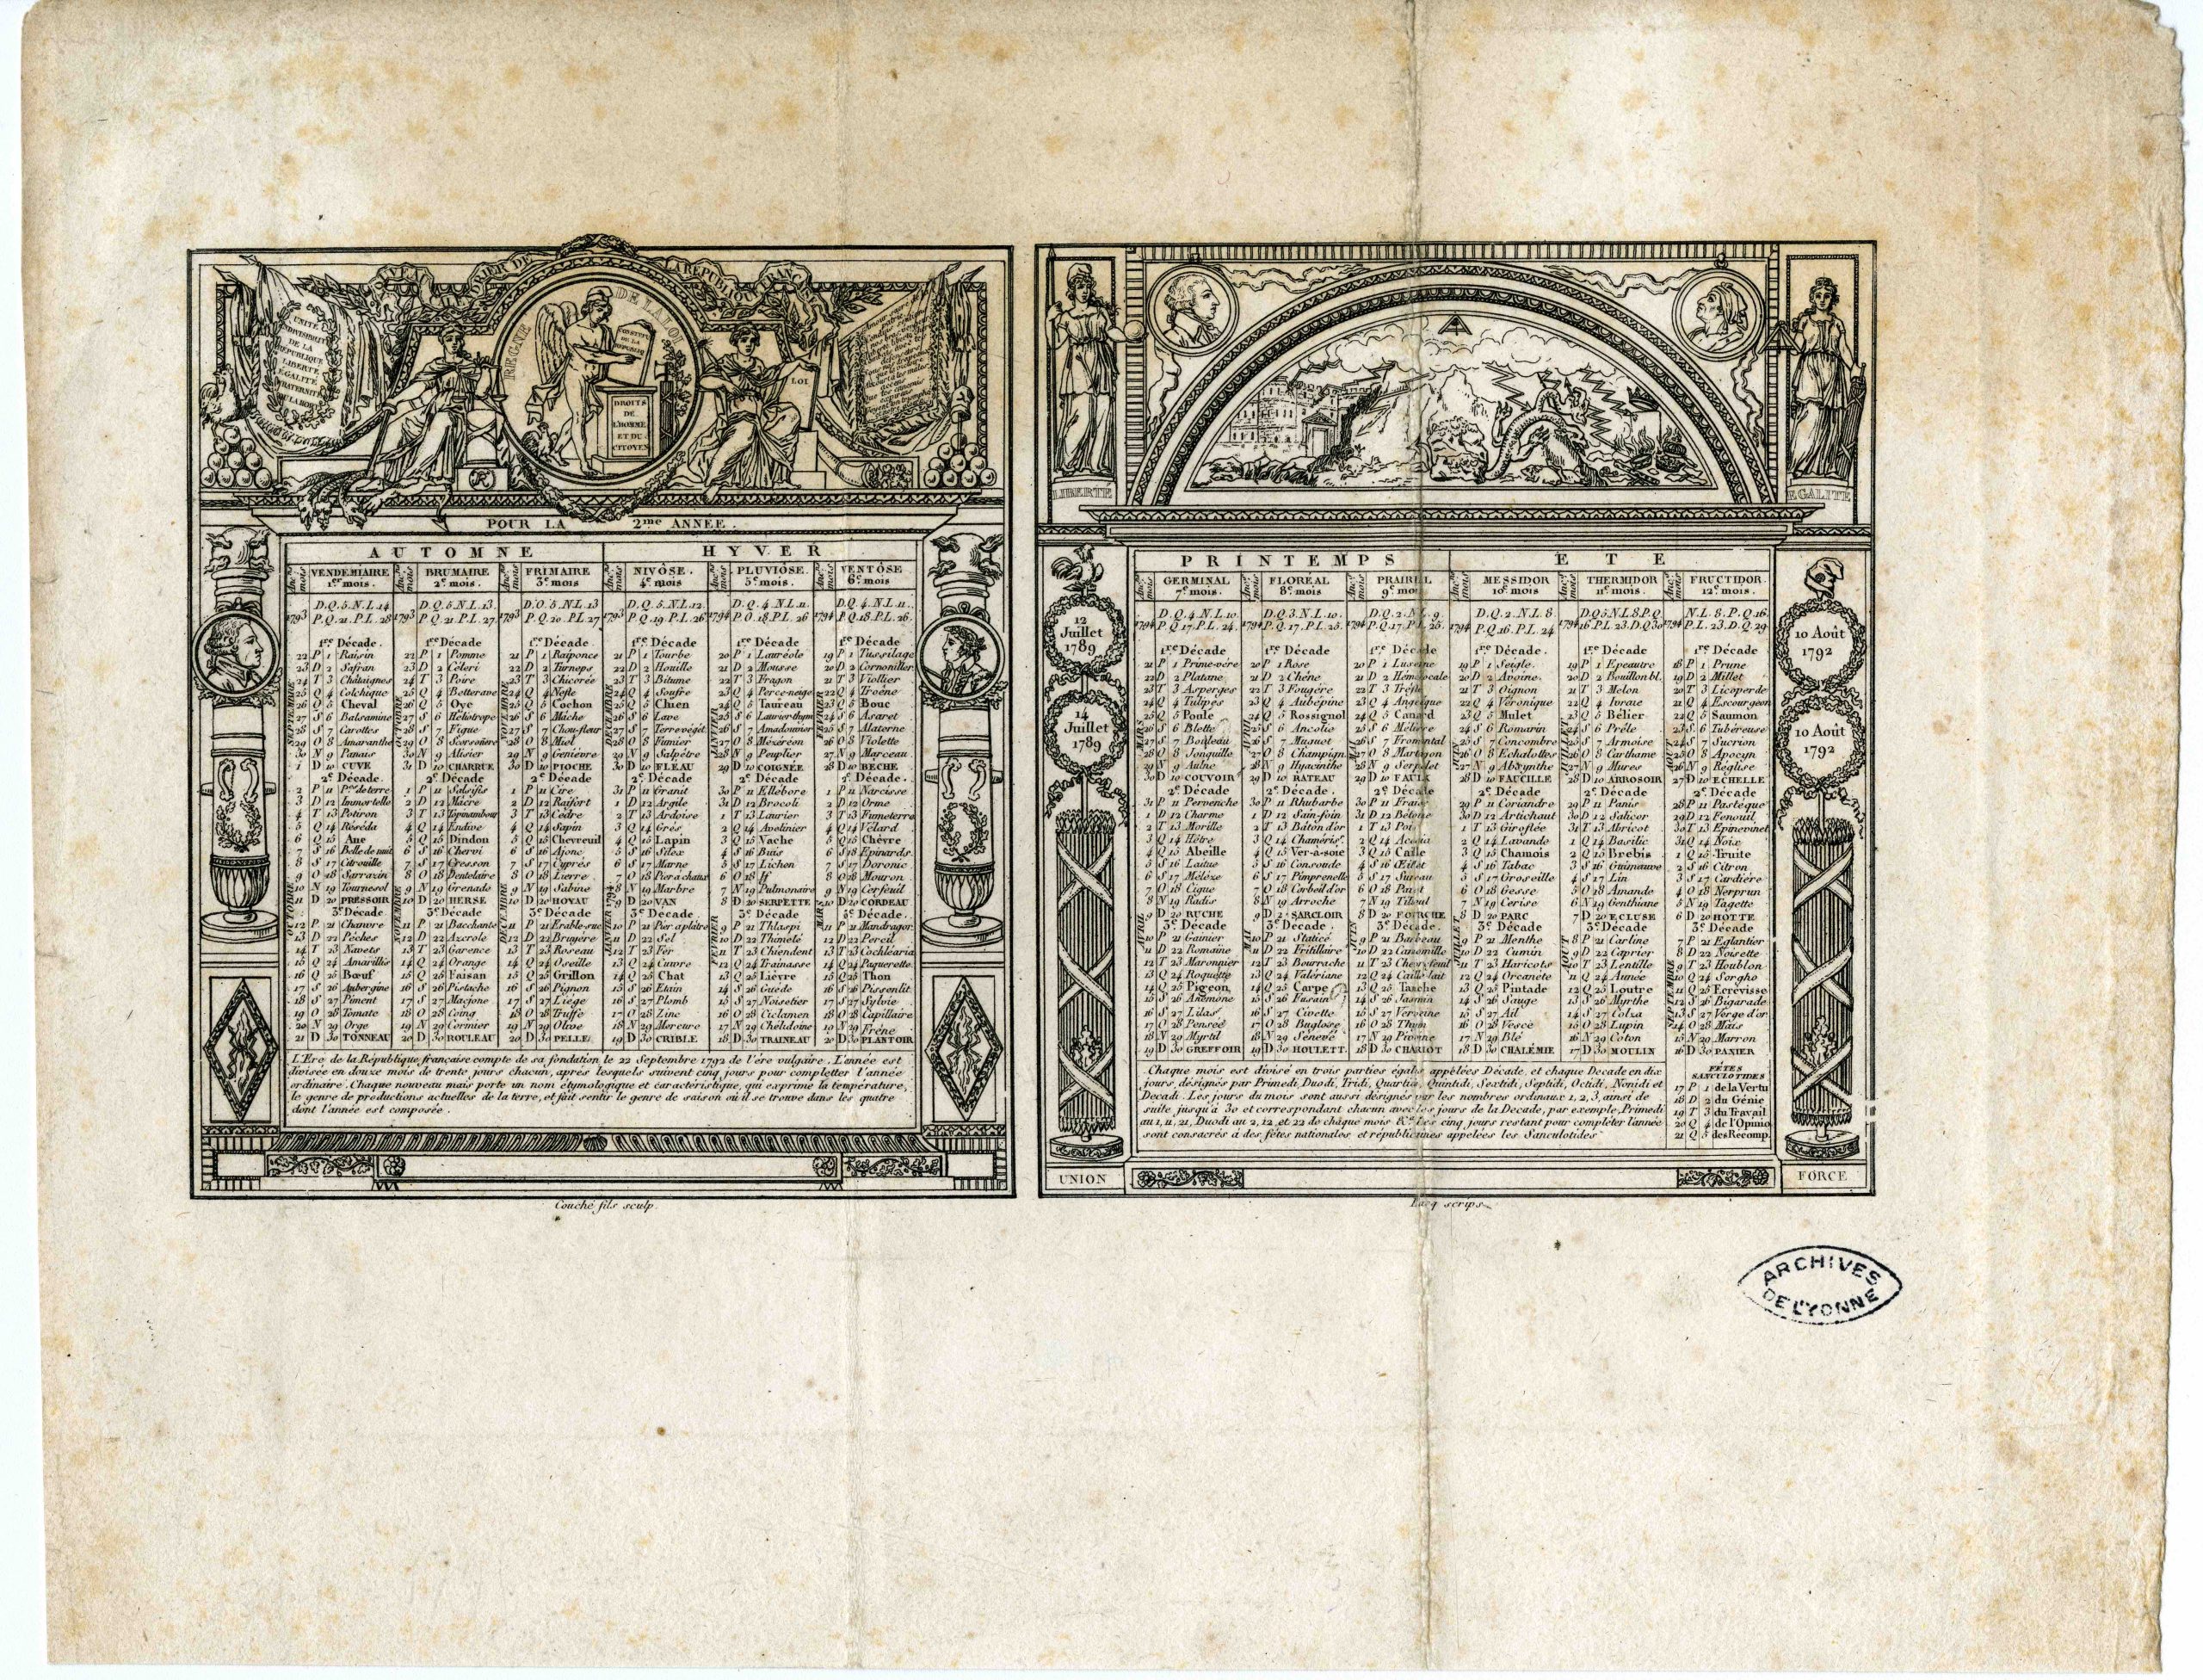 NOUVEAU CALENDRIER DE LA RÉPUBLIQUE FRANÇAISE
UNITÉ
INDIVISIBILITÉ
DE LA
RÉPUBLIQUE
LIBERTÉ
EGALITÉ
FRATERNITÉ
OU LA MORT
REGNE DE LA LOI
DROITS
DE
L'HOMME
ET DU
CITOYEN
LOI
POUR LA 2me ANNÉE.
AUTOMNE
HYVER
VENDEMIAIRE
1er mois.
1793
D.Q.5.N.L.14
P.Q.21.P.L.28
1re Décade.
22 P 1 Raisin
23 D 2 Safran
24 T 3 Châtaignes
25 Q 4 Colchique
26 Q 5 Cheval
27 S 6 Balsamine
28 S 7 Carottes
29 O 8 Amaranthe
30 N 9 Panais
1 D 10 CUVE
2e Décade.
2 P 11 Pme de terre
3 D 12 Immortelle
4 T 13 Potiron
5 Q 14 Réséda
6 Q 15 Ane
7 S 16 Belle de nuit
8 S 17 Citrouille
9 O 18 Sarrazin
10 N 19 Tournesol
11 D 20 PRESSOIR
3e Décade.
12 P 21 Chanvre
13 D 22 Pêches
14 T 23 Navets
15 Q 24 Amarillis
16 Q 25 Bœuf
17 S 26 Aubergine
18 S 27 Piment
19 O 28 Tomate
20 N 29 Orge
21 D 30 TONNEAU
BRUMAIRE
2e mois.
1793
D.Q.5.N.L.13.
P.Q.21.P.L.27
1re Décade
22 P 1 Pomme
23 D 2 Céleri
24 T 3 Poire
25 Q 4 Betterave
26 Q 5 Oye
27 S 6 Héliotrope
28 S 7 Figue
29 O 8 Scorsonère
30 N 9 Alisier
31 D 10 CHARRUE
2e Décade
1 P 11 Salsifis
2 D 12 Macre
3 T 13 Topinambour
4 Q 14 Endive
5 Q 15 Dindon
6 S 16 Chervi
7 S 17 Cresson
8 O 18 Dentelaire
9 N 19 Grenade
10 D 20 HERSE
3e Décade
11 P 21 Bacchante
12 D 22 Azerole
13 T 23 Garence
14 Q 24 Orange
15 Q 25 Faisan
16 S 26 Pistache
17 S 27 Macjone
18 O 28 Coing
19 N 29 Cormier
20 D 30 ROULEAU
FRIMAIRE
3e mois
1793
D.Q.5.N.L.13
P.Q.20.P.L.27
1re Décade
21 P 1 Raiponce
22 D 2 Turneps
23 T 3 Chicorée
24 Q 4 Nefle
25 Q 5 Cochon
26 S 6 Mâche
27 S 7 Chou-fleur
28 O 8 Miel
29 N 9 Genièvre
30 D 10 PIOCHE
2e Décade
1 P 11 Cire
2 D 12 Raifort
3 T 13 Cèdre
4 Q 14 Sapin
5 Q 15 Chevreuil
6 S 16 Ajonc
7 S 17 Cyprès
8 O 18 Lierre
9 N 19 Sabine
10 D 20 HOYAU
3e Décade
11 P 21 Erable-suc
12 D 22 Bruyère
13 T 23 Roseau
14 Q 24 Oseille
15 Q 25 Grillon
16 S 26 Pignon
17 S 27 Liége
18 O 28 Truffe
19 N 29 Olive
20 D 30 PELLE
NIVÔSE.
4e mois
1793
D.Q.5.N.L.12.
P.Q.19.P.L.26
1re Décade
21 P 1 Tourbe
22 D 2 Houille
23 T 3 Bitume
24 Q 4 Soufre
25 Q 5 Chien
26 S 6 Lave
27 S 7 Terre végét.
28 O 8 Fumier
29 N 9 Salpêtre
30 D 10 FLÉAU
2e Décade
31 P 11 Granit
1 D 12 Argile
2 T 13 Ardoise
3 Q 14 Grés
4 Q 15 Lapin
5 S 16 Silex
6 S 17 Marne
7 O 18 Pier à chaux
8 N 19 Marbre
9 D 20 VAN
3e Décade
10 P 21 Pier. à plâtre
11 D 22 Sel
12 T 23 Fer
13 Q 24 Cuivre
14 Q 25 Chat
15 S 26 Etain
16 S 27 Plomb
17 O 28 Zinc
18 N 29 Mercure
19 D 30 CRIBLE
PLUVIÔSE.
5e mois.
1794
D.Q.4.N.L.11.
P.Q.18.P.L.26
1re Décade
20 P 1 Lauréole
21 D 2 Mousse
22 T 3 Fragon
23 Q 4 Perce-neige
24 Q 5 Taureau
25 S 6 Laurier thym
26 S 7 Amadouvier
27 O 8 Mézéréon
28 N 9 Peuplier
29 D 10 COIGNÉE
2e Décade
30 P 11 Ellébore
31 D 12 Brocoli
1 T 13 Laurier
2 Q 14 Avelinier
3 Q 15 Vache
4 S 16 Buis
5 S 17 Lichen
6 O 18 If
7 N 19 Pulmonaire
8 D 20 SERPETTE
3e Décade
9 P 21 Thlaspi
10 D 22 Thimelé
11 T 23 Chiendent
12 Q 24 Trainasse
13 Q 25 Lièvre
14 S 26 Guède
15 S 27 Noisetier
16 O 28 Ciclamen
17 N 29 Chélidoine
18 D 30 TRAINEAU
VENTÔSE
6e mois
1794
D.Q.4.N.L.11.
P.Q.18.P.L.26.
1re Décade
19 P 1 Tussilage
20 D 2 Cornouiller
21 T 3 Viollier
22 Q 4 Troène
23 Q 5 Bouc
24 S 6 Asaret
25 S 7 Alaterne
26 O 8 Violette
27 N 9 Marceau
28 D 10 BECHE
2e Décade.
1 P 11 Narcisse
2 D 12 Orme
3 T 13 Fumeterre
4 Q 14 Vélard
5 Q 15 Chèvre
6 S 16 Epinards.
7 S 17 Doronic
8 O 18 Mouron
9 N 19 Cerfeuil
10 D 20 CORDEAU
3e Décade.
11 P 21 Mandragor.
12 D 22 Percil
13 T 23 Cochléaria
14 Q 24 Paquerette
15 Q 25 Thon
16 S 26 Pissenlit.
17 S 27 Sylvie
18 O 28 Capillaire
19 N 29 Frêne
20 D 30 PLANTOIR
L'Ere de la République française compte de sa fondation le 22 Septembre 1792 de l'ére vulgaire. L'année est
divisée en douze mois de trente jours chacun, après lesquels suivent cinq jours pour completter l'année
ordinaire. Chaque nouveau mais porte un nom étymologique et caractéristique, qui exprime la température,
le genre de productions actuelles de la terre, et fait sentir le genre de saison où il se trouve dans les quatre
dont l'année est composée.
Couché fils sculp.
LIBERTÉ
EGALITÉ
12
Juillet
1789
14
Juillet
1789
10 Août
1792
10 Août
1792
PRINTEMPS
ÉTÉ
GERMINAL
7e mois.
1794
D.Q.4.N.L.10.
P.Q.17.P.L.24.
1re Décade
21 P 1 Prime-vère
22 D 2 Platane
23 T 3 Asperges
24 Q 4 Tulipes
25 Q 5 Poule
26 S 6 Blette
27 S 7 Bouleau
28 O 8 Jonquille
29 N 9 Aulne
30 D 10 COUVOIR
2e Décade
31 P 11 Pervenche
1 D 12 Charme
2 T 13 Morille
3 Q 14 Hêtre
4 Q 15 Abeille
5 S 16 Laitue
6 S 17 Mélèze
7 O 18 Cigue
8 N 19 Radis
9 D 20 RUCHE
3e Décade
10 P 21 Gainier
11 D 22 Romaine
12 T 23 Maronquier
13 Q 24 Roquette
14 Q 25 Pigeon
15 S 26 Anémone
16 S 27 Lilas
17 O 28 Pensée
18 N 29 Myrtil
19 D 30 GREFFOIR
FLOREAL
8e mois.
1794
D.Q.3.N.L.10.
P.Q.17.P.L.25.
1re Décade
20 P 1 Rose
21 D 2 Chêne
22 T 3 Fougère
23 Q 4 Aubépine
24 Q 5 Rossignol
25 S 6 Ancolie
26 S 7 Muguet
27 O 8 Champign
28 N 9 Hyacinthe
29 D 10 RATEAU
2e Décade.
30 P 11 Rhubarbe
1 D 12 Sain-foin
2 T 13 Bâton d'or
3 Q 14 Chaméris.
4 Q 15 Ver-à-soie
5 S 16 Consoude
6 S 17 Pimprenelle
7 O 18 Corbeil d'or
8 N 19 Arroche
9 D 20 SARCLOIR
3e Décade.
10 P 21 Staticé
11 D 22 Fritillaire
12 T 23 Bourrache
13 Q 24 Valériane
14 Q 25 Carpe
15 S 26 Fusain
16 S 27 Civette
17 O 28 Buglose
18 N 29 Sénevé
19 D 30 HOULETT.
PRAIRIAL
9e mois
1794
D.Q.2.N.L.9.
P.Q.17.P.L.25.
1re Décade
20 P 1 Luserne
21 D 2 Hémérocale
22 T 3 Trèfle
23 Q 4 Angélique
24 Q 5 Canard
25 S 6 Mélisse
26 S 7 Fromental
27 O 8 Martagon
28 N 9 Serpolet
29 D 10 FAULX
2e Décade
30 P 11 Fraise
31 D 12 Bétoine
1 T 13 Pois
2 Q 14 Acacia
3 Q 15 Caille
4 S 16 Œillet
5 S 17 Sureau
6 O 18 Pavot
7 N 19 Tilleul
8 D 20 FOURCHE
3e Décade.
9 P 21 Barbeau
10 D 22 Camomille
11 T 23 Chevrfeuil
12 Q 24 Caille-lait
13 Q 25 Tanche
14 S 26 Jasmin
15 S 27 Verveine
16 O 28 Thym
17 N 29 Pivoine
18 D 30 CHARIOT
MESSIDOR
10e mois
1794
D.Q.2.N.L.8
P.Q.16.P.L.24
1re Décade.
19 P 1 Seigle
20 D 2 Avoine
21 T 3 Oignon
22 Q 4 Véronique
23 Q 5 Mulet
24 S 6 Romarin
25 S 7 Concombre
26 O 8 Echalottes
27 N 9 Absynthe
28 D 10 FAUCILLE
2e Décade
29 P 11 Coriandre
30 D 12 Artichaut
1 T 13 Giroflée
2 Q 14 Lavande
3 Q 15 Chamois
4 S 16 Tabac
5 S 17 Groseille
6 O 18 Gesse
7 N 19 Cerise
8 D 20 PARC
3e Décade
9 P 21 Menthe
10 D 22 Cumin
11 T 23 Haricots
12 Q 24 Orcanete
13 Q 25 Pintade
14 S 26 Sauge
15 S 27 Ail
16 O 28 Vesce
17 N 29 Blé
18 D 30 CHALÉMIE
THERMIDOR
11e mois.
1794
D.Q.5.N.L.8.P.Q
16.P.L.23.D.Q.30
1re Décade
19 P 1 Epeautre
20 D 2 Bouillon bl.
21 T 3 Melon
22 Q 4 Ivraie
23 Q 5 Bélier
24 S 6 Prêle
25 S 7 Armoise
26 O 8 Carthame
27 N 9 Mures
28 D 10 ARROSOIR
2e Décade
29 P 11 Panis
30 D 12 Salicor
31 T 13 Abricot
1 Q 14 Basilic
2 Q 15 Brebis
3 S 16 Guimauve
4 S 17 Lin
5 O 18 Amande
6 N 19 Genthiane
7 D 20 ECLUSE
3e Décade
8 P 21 Carline
9 D 22 Caprier
10 T 23 Lentille
11 Q 24 Aunée
12 Q 25 Loutre
13 S 26 Myrthe
14 S 27 Colza
15 O 28 Lupin
16 N 29 Coton
17 D 30 MOULIN
FRUCTIDOR.
12e mois.
1794
N.L.8.P.Q.16.
P.L.23.D.Q.29
1re Décade
18 P 1 Prune
19 D 2 Millet
20 T 3 Licoperde
21 Q 4 Escourgeon
22 Q 5 Saumon
23 S 6 Tubéreuse
24 S 7 Sucrion
25 O 8 Apocyn
26 N 9 Réglise
27 D 10 ECHELLE
2e Décade
28 P 11 Pastèque
29 D 12 Fenouil
30 T 13 Epinevinet
31 Q 14 Noix
1 Q 15 Truite
2 S 16 Citron
3 S 17 Cardière
4 O 18 Nerprun
5 N 19 Tagette
6 D 20 HOTTE
3e Décade
7 P 21 Eglantier
8 D 22 Noisette
9 T 23 Houblon
10 Q 24 Sorgho
11 Q 25 Ecrévisse
12 S 26 Bigarade
13 S 27 Verge d'or
14 O 28 Maïs
15 N 29 Marron
16 D 30 PANIER
FÊTES
SANCULOTIDES
17 P 1 de la Vertu
18 D 2 du Génie
19 T 3 du Travail
20 Q 4 de l'Opinio
21 Q 5 des Recomp.
Chaque mois est divisé en trois parties égales appélées Décade, et chaque Decade en dix
jours, désignés par Primedi, Duodi, Tridi, Quartidi, Quintidi, Sextidi, Septidi, Octidi, Nonidi et
Decadi. Les jours du mois sont aussi désignés par les nombres ordinaux 1, 2, 3, ainsi de
suite jusqu'à 30 et correspondant chacun avec les jours de la Decade, par exemple, Primedi
au 1, 11, 21, Duodi au 2, 12 et 22 de châque mois &c. Les cinq jours restant pour compléter l'année
sont consacrés à des fêtes nationales et républicaines appelées les Sanculotides
UNION
FORCE
scrips.
ARCHIVES
DE L'YONNE